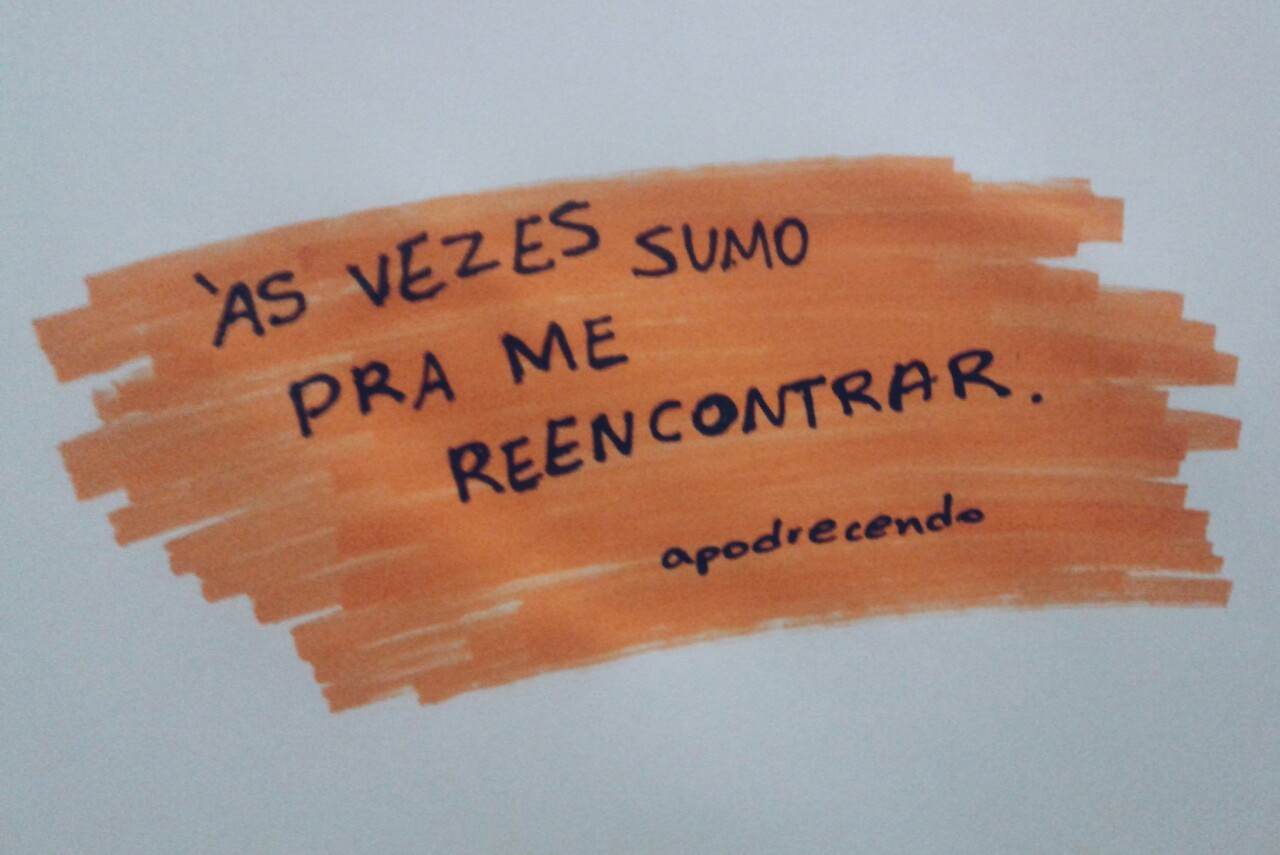 ÀS VEZES SUMO
PRA ME
REENCONTRAR.
apodrecendo